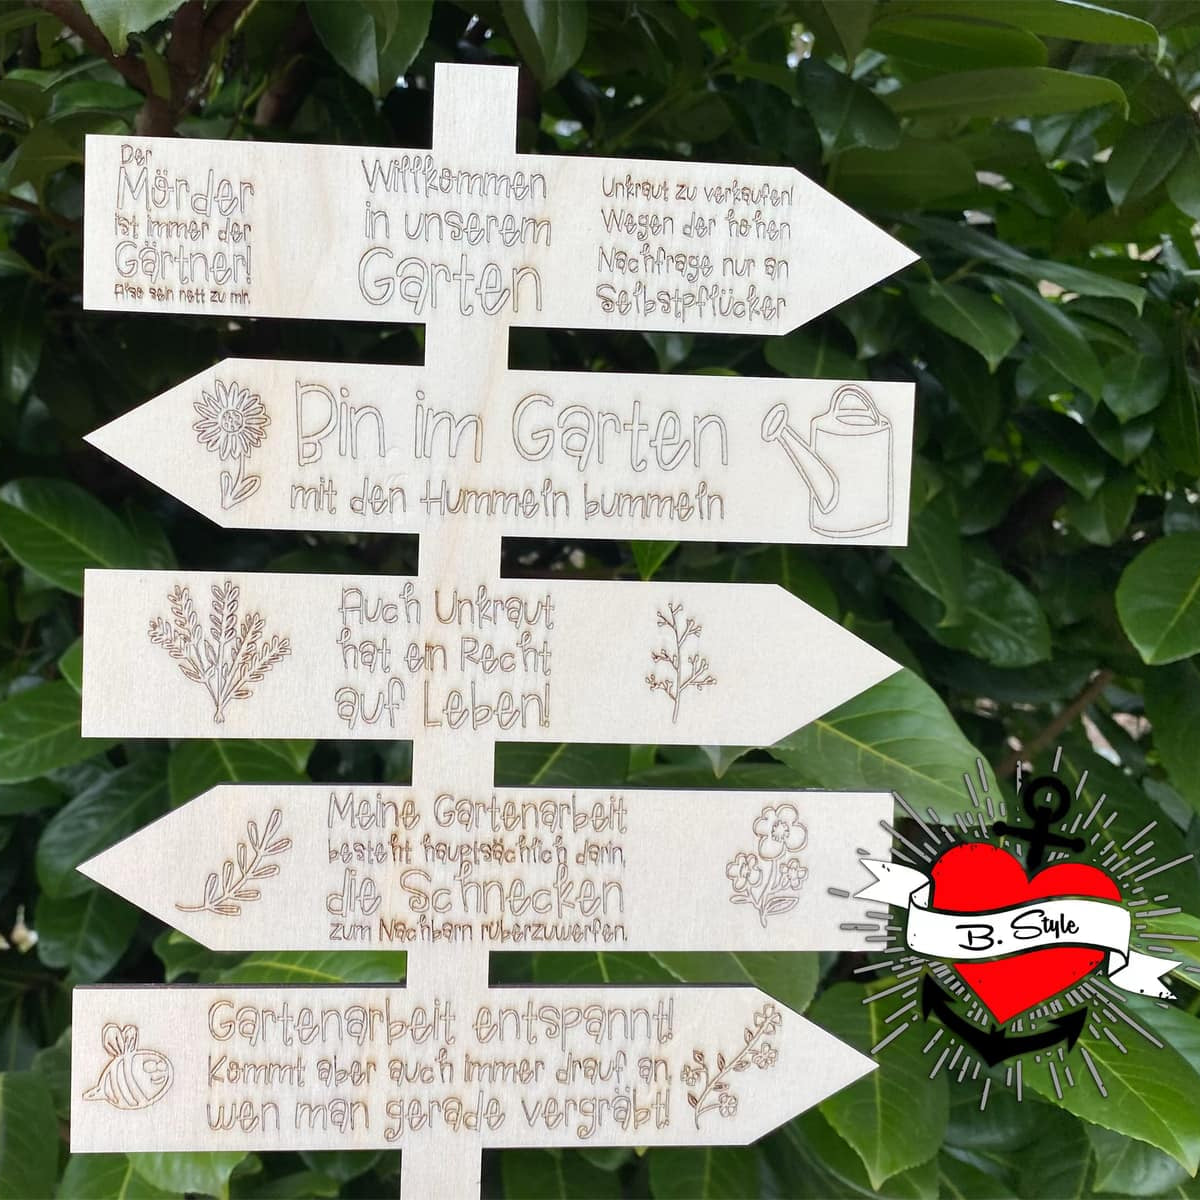 Der
Mörder
ist immer der
Gärtner!
Also sein nett zu mir.
Willkommen
in unserem
Garten
Unkraut zu verkaufen!
Wegen der hohen
Nachfrage nur an
Selbstpflücker
Bin im Garten
mit den Hummeln bummeln
Auch Unkraut
hat ein Recht
auf Leben!
Meine Gartenarbeit
besteht hauptsächlich darin,
die Schnecken
zum Nachbarn rüberzuwerfen.
Gartenarbeit entspannt!
Kommt aber auch immer drauf an,
wen man gerade vergräbt!
B. Style